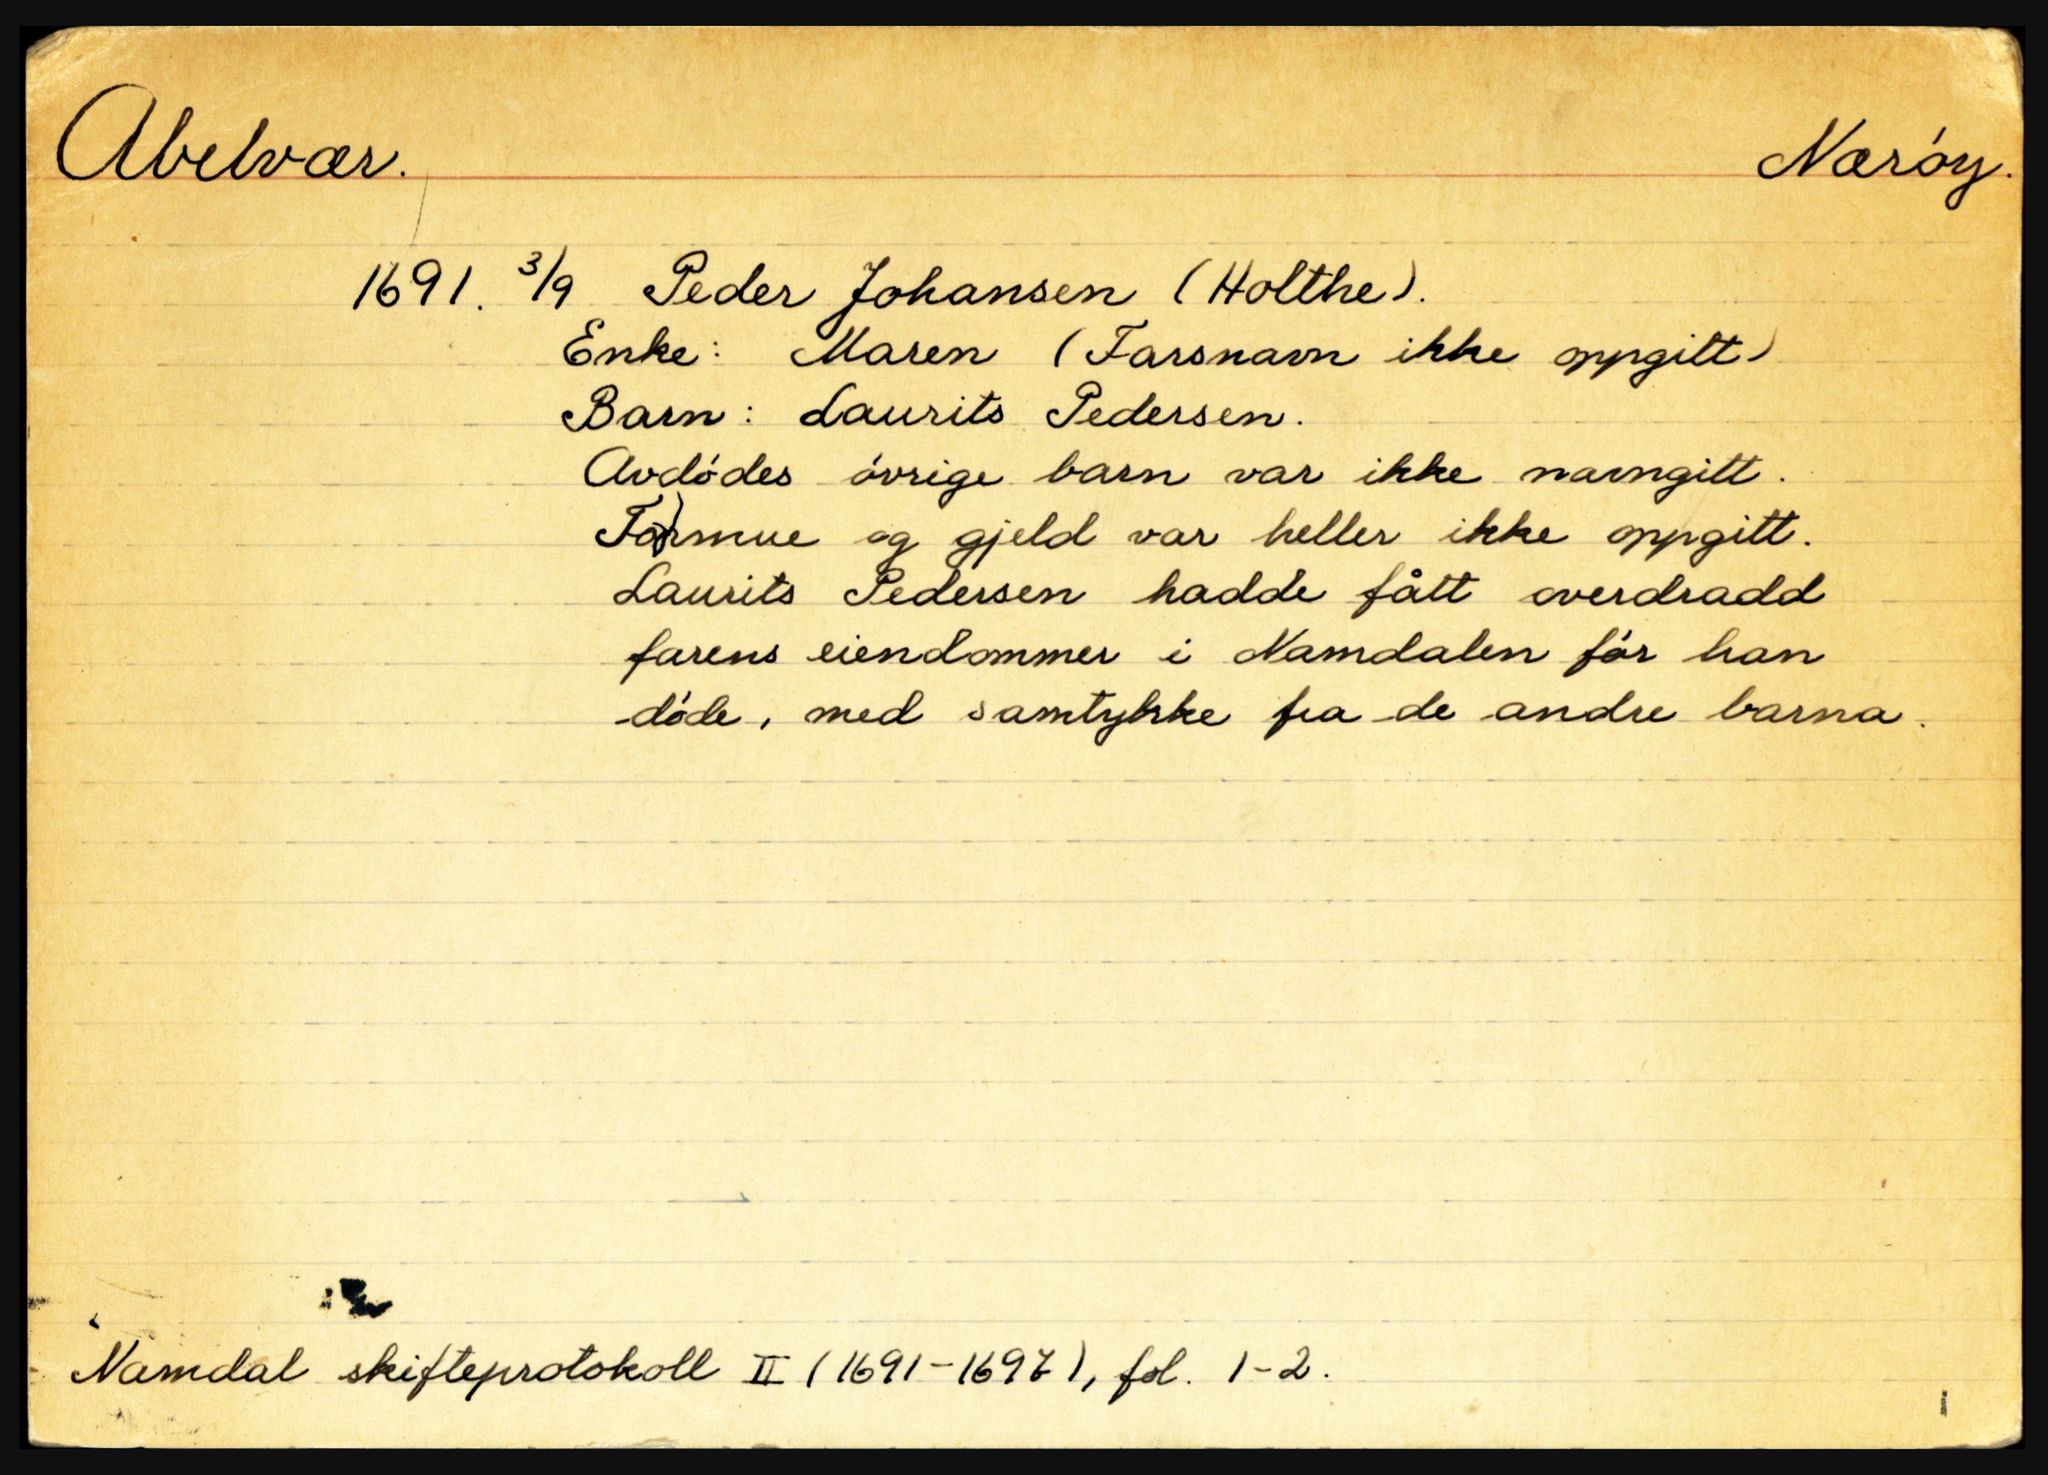 Abelvær. Nærøy.
1691. 3/9 Peder Johansen (Holthe).
Enke: Maren (Farsnavn ikke oppgitt)
Barn: Laurits Pedersen.
Avdødes øvrige barn var ikke navngitt.
Formue og gjeld var heller ikke oppgitt.
Laurits Pedersen hadde fått overdradd
farens eiendommer i Namdalen før han
døde, med samtykke fra de andre barna.
Namdal skifteprotokoll II (1691-1697), fol. 1-2.